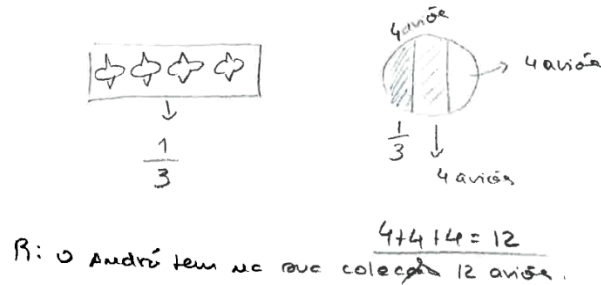 4 aviões
4 aviões
1/3
1/3
4 aviões
4+4+4 = 12
R: O André tem na sua coleção 12 aviões.